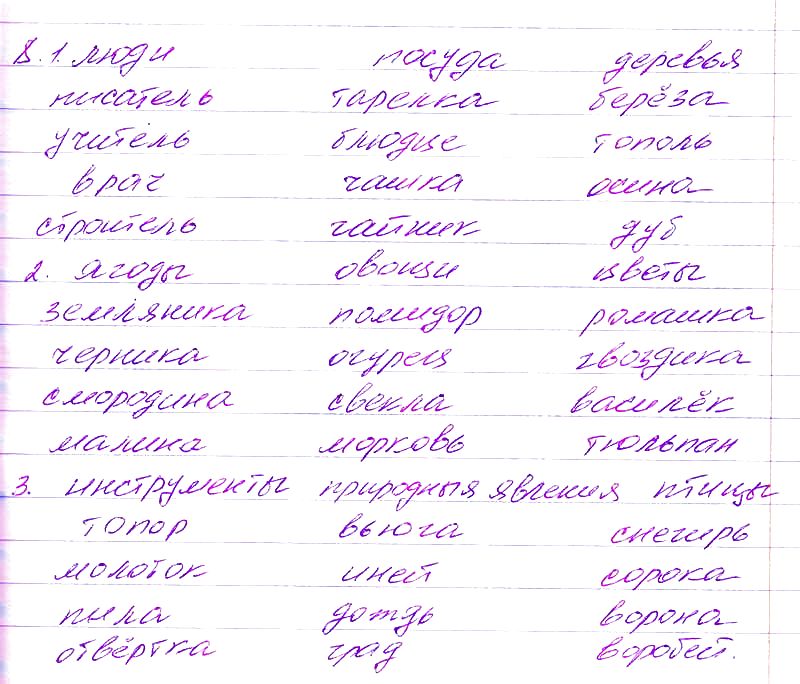 8. 1. люди посуда деревья
писатель тарелка берёза
учитель блюдце тополь
врач чашка осина
строитель чайник дуб
2. ягоды овощи цветы
земляника помидор ромашка
черника огурец гвоздика
смородина свекла василёк
малина морковь тюльпан
3. инструменты природныя явления птицы
топор вьюга снегирь
молоток иней сорока
пила дождь ворона
отвёртка град воробей.